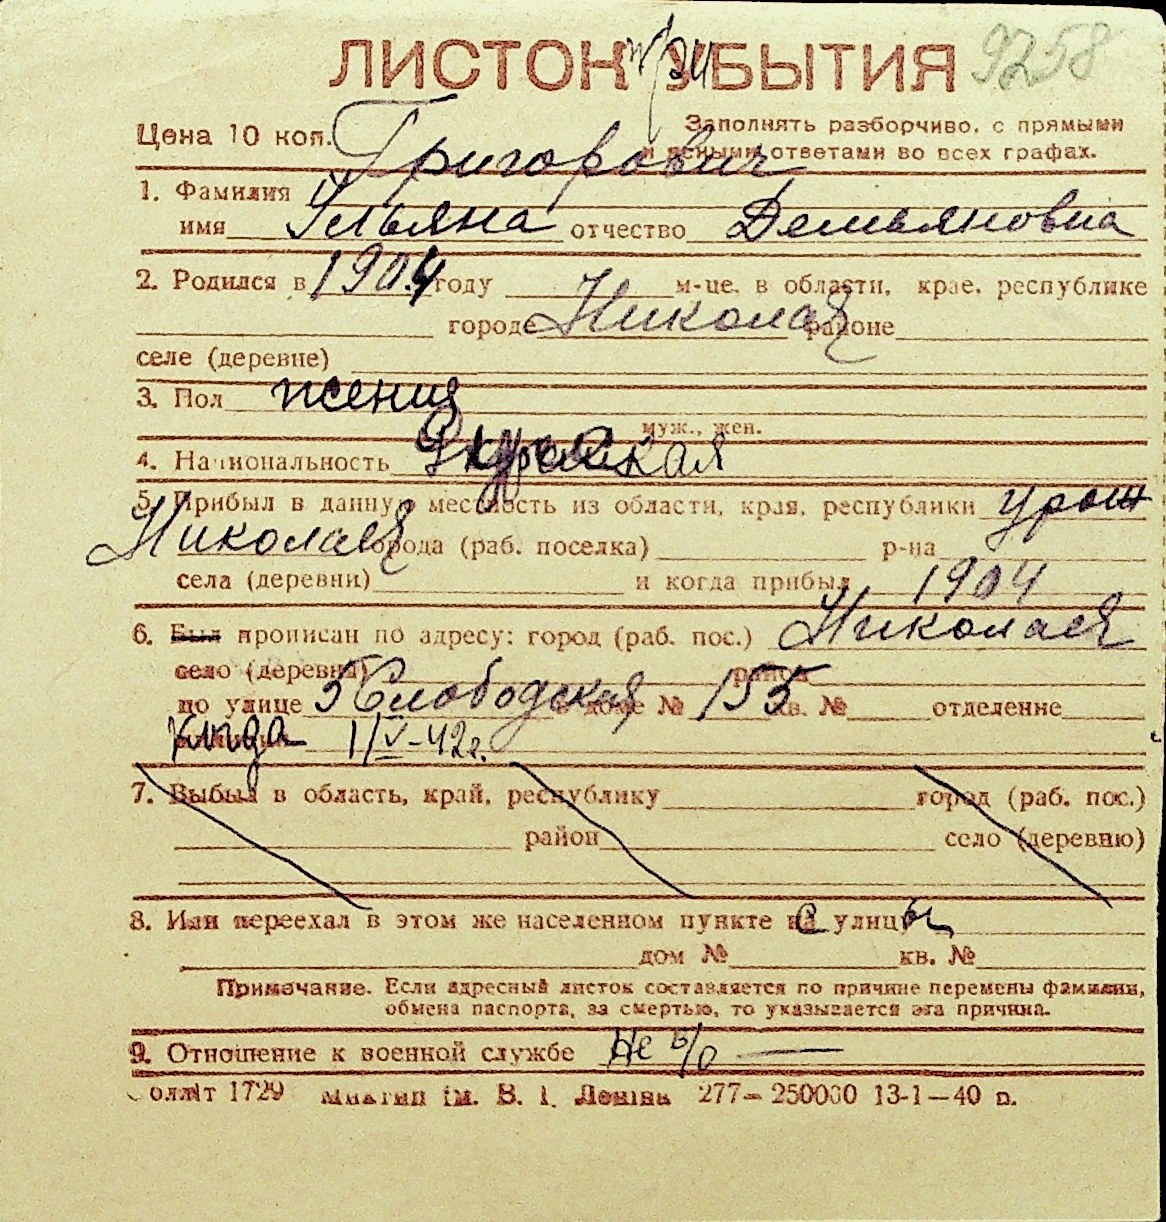 ЛИСТОК УБЫТИЯ 9258
Цена 10 коп. Заполнять разборчиво, с прямыми
и ясными ответами во всех графах.
1. Фамилия Григорович
имя Ульяна отчество Демьяновна
2. Родился в 1904 году м-це. в области, крае, республике
городе Николаев районе
селе (деревне)
3. Пол жения
муж., жен.
4. Национальность
5. Прибыл в данную местность из области, края, республики урож
Николаев города (раб. поселка) р-на
села (деревни) и когда прибыл 1904
6. Был прописан по адресу: город (раб. пос.) Николаев
село (деревня) район
по улице 5 Слободская в доме № 155 кв. № отделение
когда 1/V-42г.
7. Выбыл в область, край, республику город (раб. пос.)
район село (деревню)
8. Или переехал в этом же населенном пункте с улицы
дом № кв. №
Примечание. Если адресный листок составляется по причине перемены фамилии,
обмена паспорта, за смертью, то указывается эта причина.
9. Отношение к военной службе не в/о —
1729 ім. В. І. Леніна 277— 250000 13-1—40 р.